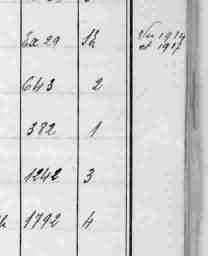 Ex 29
Vu 1914
et 1917
643 2
382 1
1242 3
1792 4